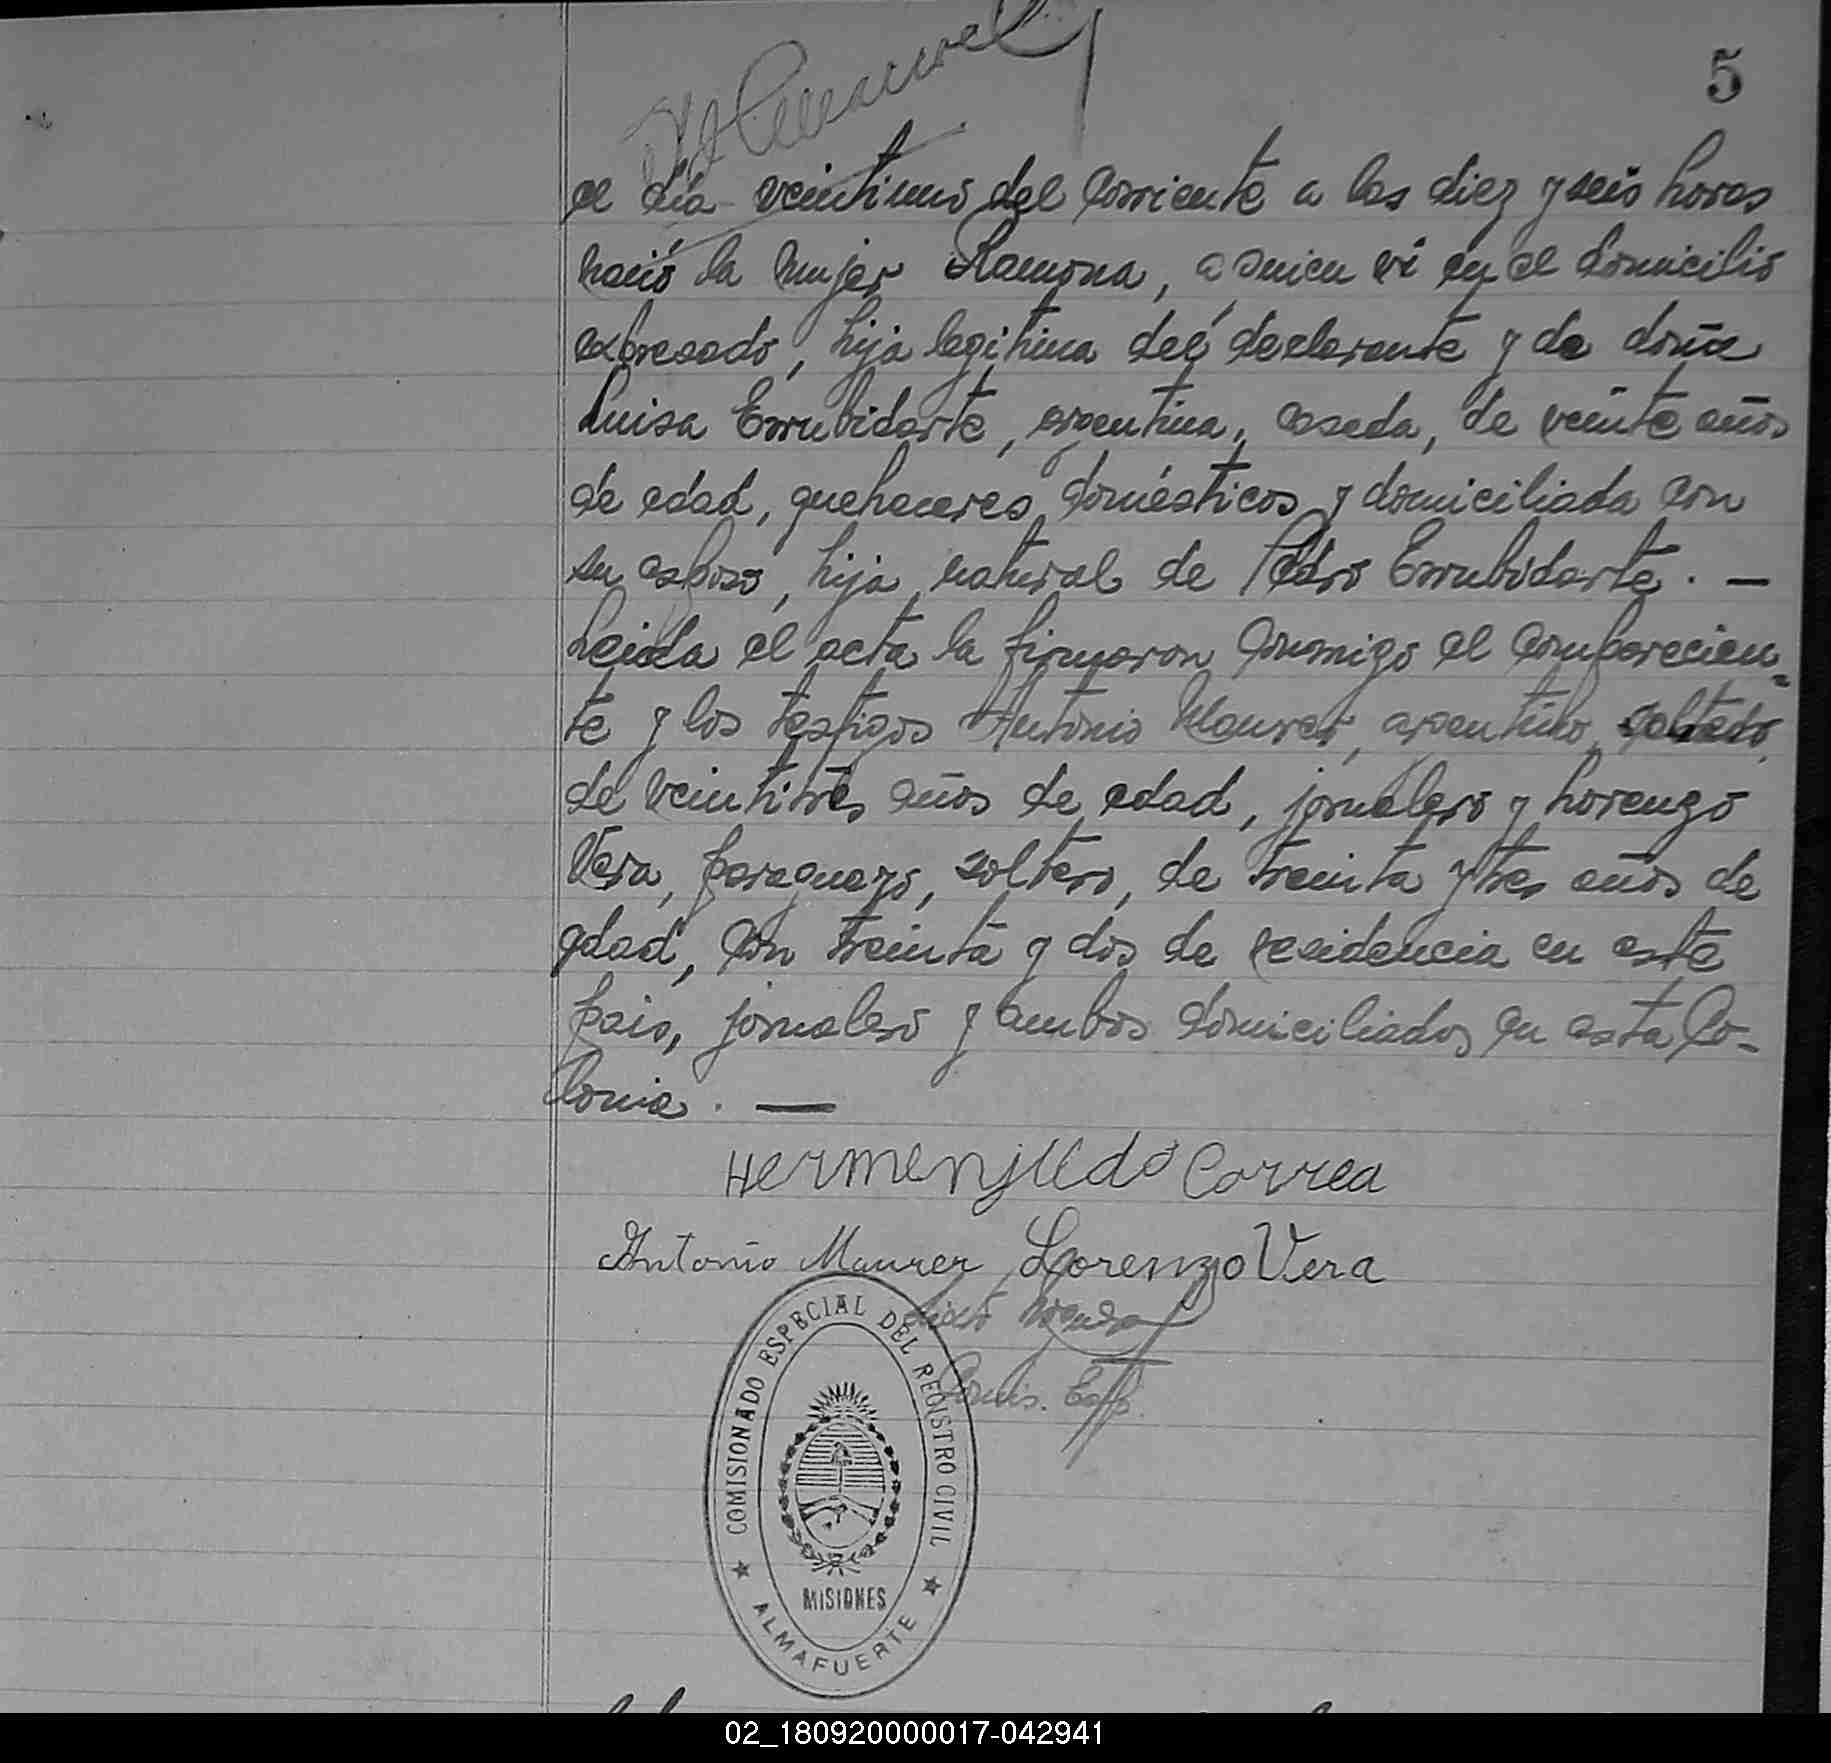 5
el día veintiuno del corriente a las diez y seis horas
nació la mujer Ramona, a quien ví en el domicilio
expresado, hija legitima del declarante y de doña
Luisa Errubidarte, argentina, casada, de veinte años
de edad, quehaceres domésticos y domiciliada con
su esposo, hija natural de Pedro Errubidarte. —
Leida el acta la firmaron conmigo el comparecien-
te y los testigos Antonio Maurer, argentino, soltero,
de veintitrés años de edad, jornalero y Lorenzo
Vera, paraguayo, soltero, de treinta y tres años de
edad, con treinta y dos de residencia en este
pais, jornalero y ambos domiciliados en esta Co-
lonia. —
Hermenjildo Correa
Antonio Maurer Lorenzo Vera
Comis. Esp.
COMISIONADO ESPECIAL DEL REGISTRO CIVIL
MISIONES
ALMAFUERTE
02_180920000017-042941